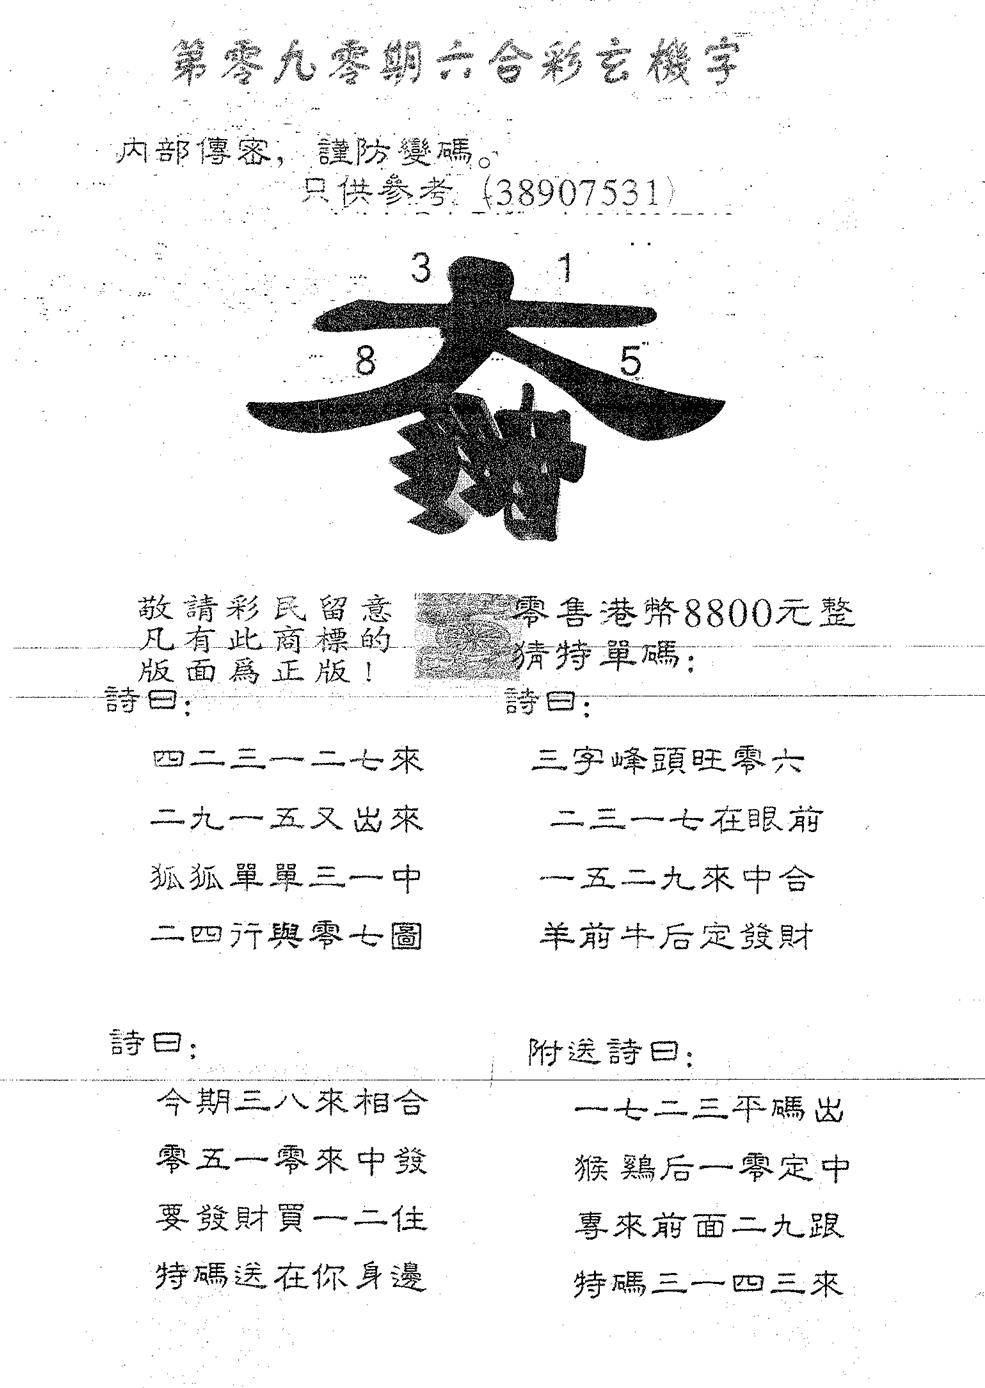 第零九零期六合彩玄機字
內部傳密，謹防變碼。
只供參考（38907531）
3 1
8 5
敬請彩民留意
凡有此商標的
版面爲正版！
零售港幣8800元整
猜特單碼：
詩曰：
四二三一二七來
二九一五又出來
狐狐單單三一中
二四行與零七圖
詩曰：
三字峰頭旺零六
二三一七在眼前
一五二九來中合
羊前牛后定發財
詩曰：
今期三八來相合
零五一零來中發
要發財買一二住
特碼送在你身邊
附送詩曰：
一七二三平碼出
猴鷄后一零定中
專來前面二九跟
特碼三一四三來